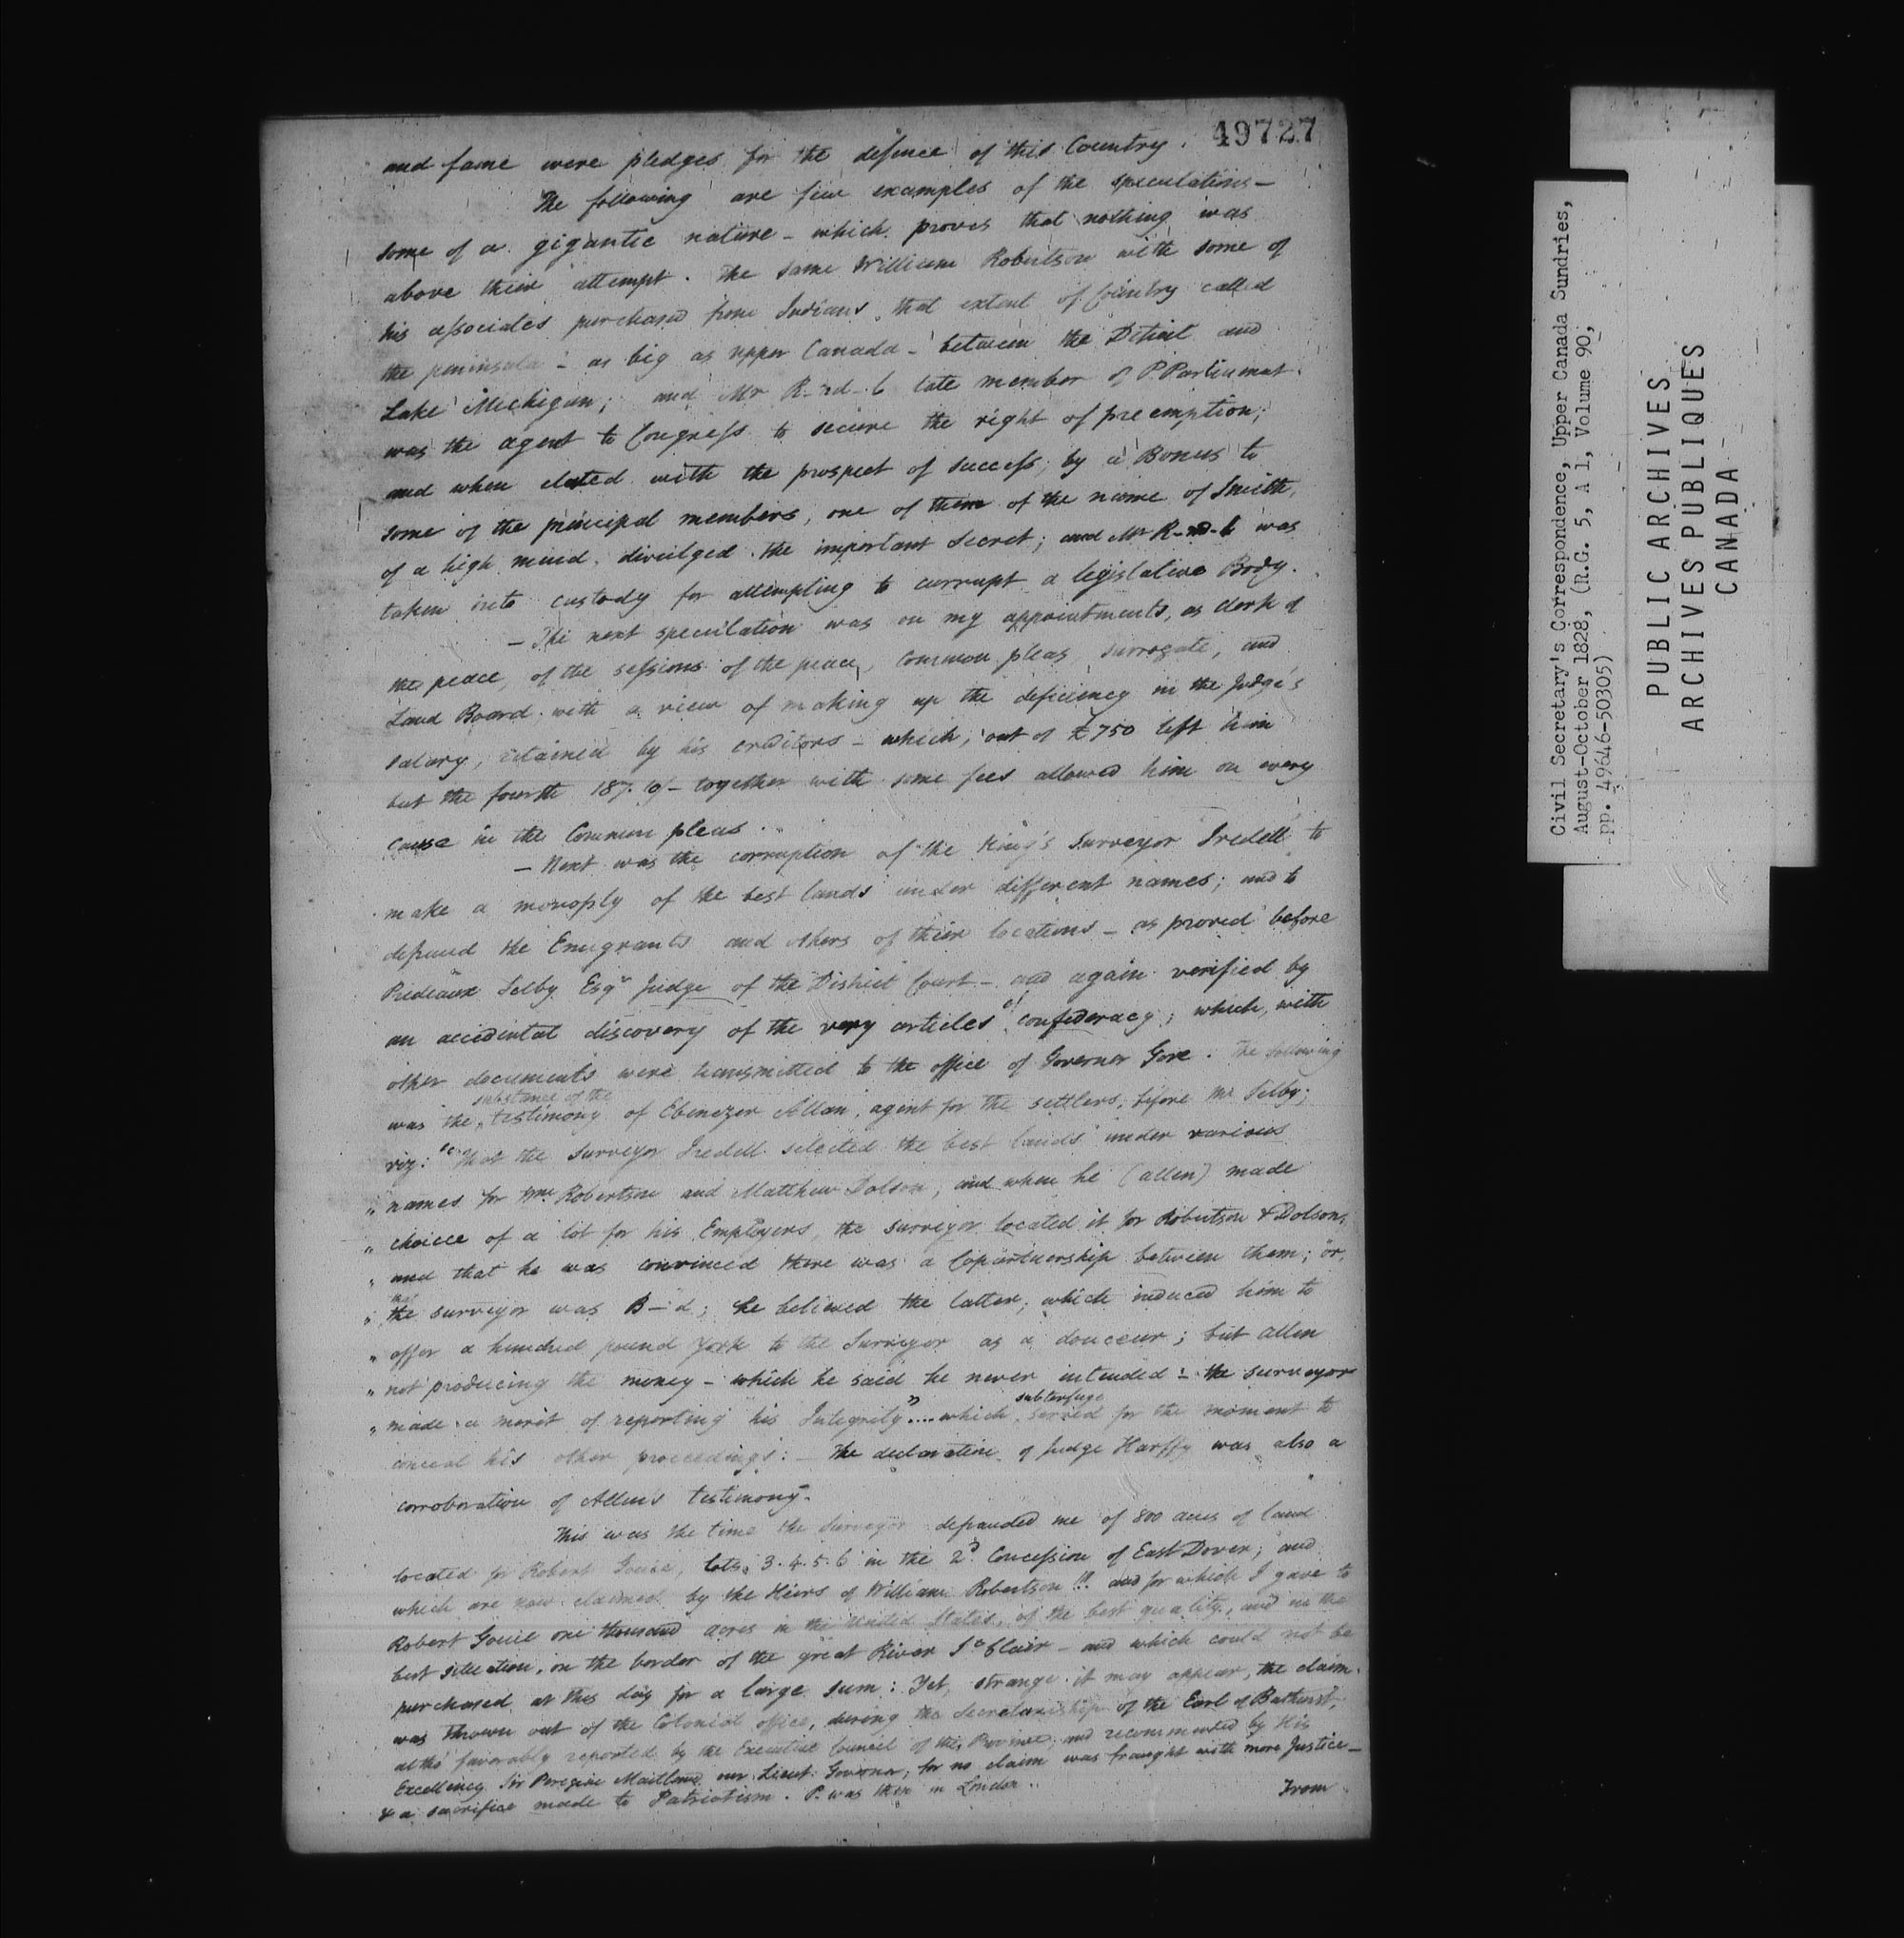 49727
and fame were pledges for the defence of this Country.
The following are few examples of the speculations—
some of a gigantic nature - which proves that nothing was
above their attempt. The same William Robertson with some of
his associates purchased from Indians, that extent of Country called
the peninsula - as big as upper Canada - between the Detroit and
Lake Michigan; and Mr R-nd-l late member of P. Parliament
was the agent to Congress to secure the right of preemption;
and when elated with the prospect of success, by a Bonus to
some of the principal members, one of them of the name of Smith,
of a high mind, divulged the important secret; and Mr R-nd-l was
taken into custody for attempting to currupt a legislative Body.
— The next speculation was on my appointments, as clerk of
the peace, of the sessions of the peace, Common pleas, surrogate, and
Land Board with a view of making up the deficiency in the Judge's
salary, retained by his creditors - which, out of £750 left him
but the fourth 187.10/- together with some fees allowed him on every
cause in the Common pleas.
— Next was the corruption of the King's Surveyor Iredell to
make a monoply of the best lands under different names; and to
defraud the Emigrants and others of their locations - as proved before
Prideaux Selby Esqr Judge of the District Court - and again verified by
an accidental discovery of the very articles of confederacy; which, with
other documents were transmitted to the office of Governor Gore. The following
was the substance of the testimony of Ebenezer Allan, agent for the settlers, before Mr Selby;
viz: "That the surveyor Iredell selected the best lands under various
" names for Wm Robertson and Matthew Dolson, and when he (allen) made
" choice of a lot for his Employers, the surveyor located it for Robertson & Dolson;
" and that he was convinced there was a Copartnership between them; or,
" that the surveyor was B—d; he believed the latter, which induced him to
" offer a hundred pound York to the Surveyor as a douceur; but allen
" not producing the money - which he said he never intended - the surveyor
" made a merit of reporting his Integrity".... which subterfuge served for the moment to
conceal his other proceedings: — The declaration of Judge Harffy was also a
corroboration of Allen's testimony.
This was the time the Surveyor defrauded me of 800 acres of land
located for Robert Gouie, lots, 3.4.5.6 in the 2d Concession of East Dover; and
which are now claimed by the Heirs of William Robertson!!! and for which I gave to
Robert Gouie one thousand acres in the United States, of the best quality, and in the
best situation, on the border of the great River St Clair - and which could not be
purchased at this day for a large sum: Yet, strange it may appear, the claim
was thrown out of the Colonial office, during the Secretaryship of the Earl of Bathurst,
altho' favorably reported by the Executive Council of this Province, and recommended by His
Excellency Sir Peregine Maitland our Lieut: Governor; for no claim was fraught with more Justice—
& a sacrifice made to Patriotism. P. was then in London..
From
Civil Secretary's Correspondence, Upper Canada Sundries,
August-October 1828, (R.G. 5, A 1, Volume 90,
pp. 49646-50305)
PUBLIC ARCHIVES
ARCHIVES PUBLIQUES
CANADA